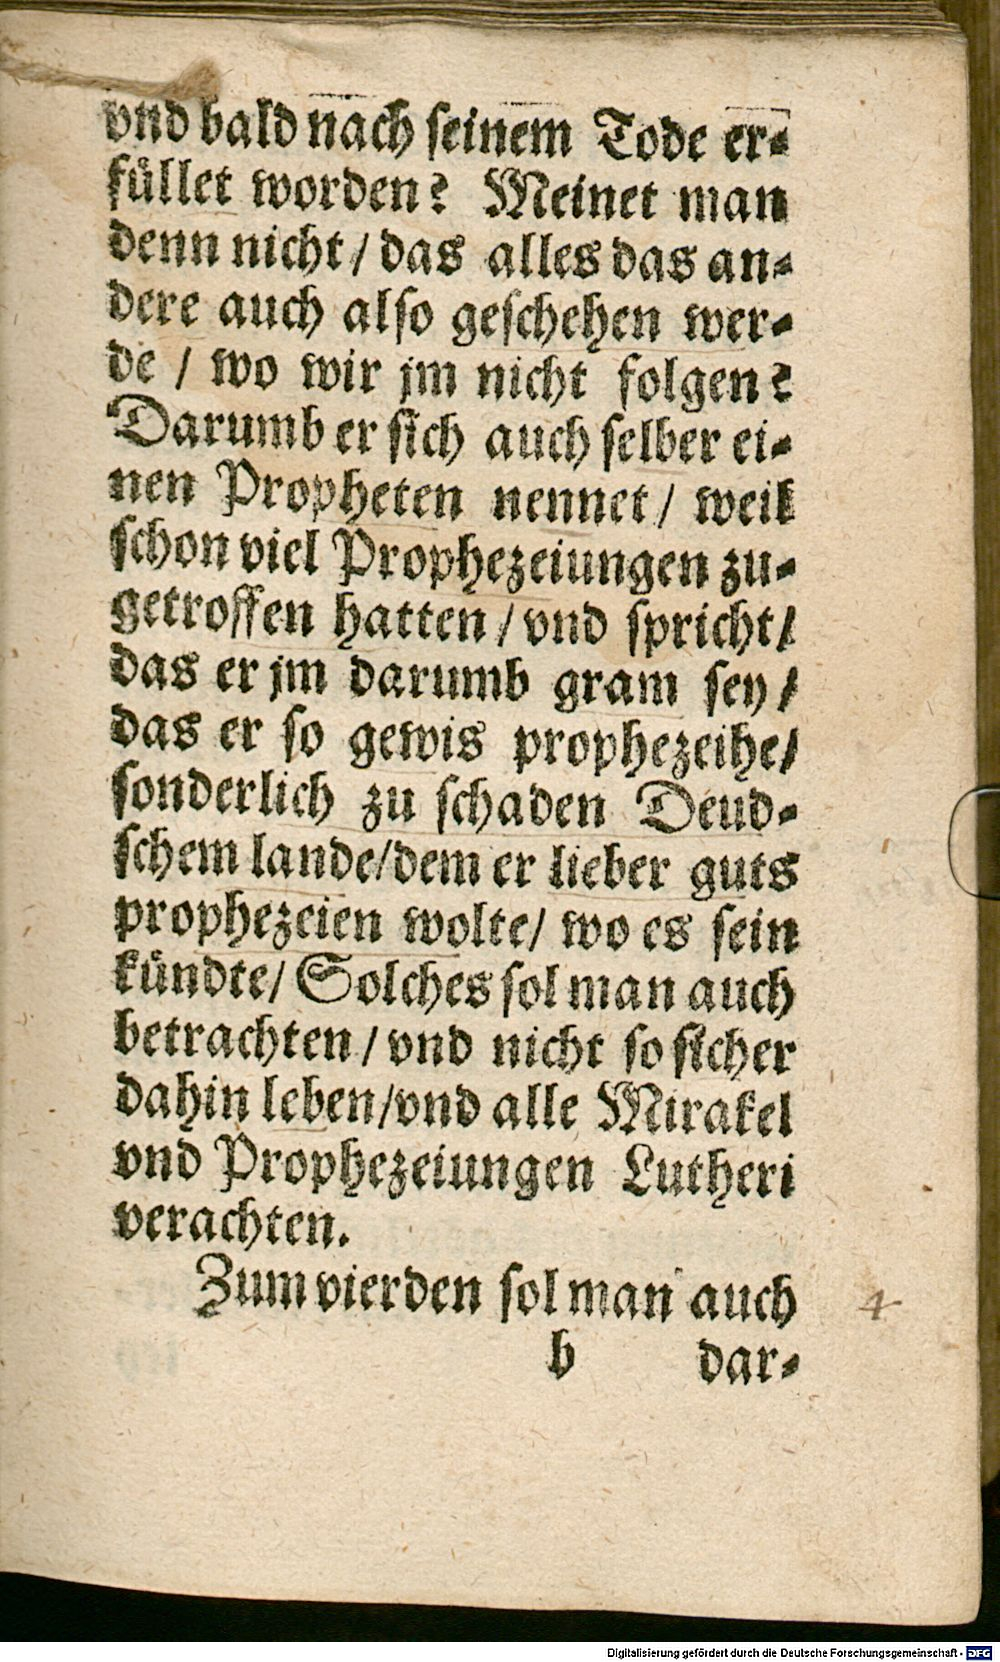 vnd bald nach seinem Tode er-
füllet worden? Meinet man
denn nicht / das alles das an-
dere auch also geschehen wer-
de / wo wir jm nicht folgen?
Darumb er sich auch selber ei-
nen Propheten nennet / weil
schon viel Prophezeiungen zu-
getroffen hatten / vnd spricht /
das er jm darumb gram sey /
das er so gewis prophezeihe /
sonderlich zu schaden Deud-
schem lande / dem er lieber guts
prophezeien wolte / wo es sein
kündte / Solches sol man auch
betrachten / vnd nicht so sicher
dahin leben / vnd alle Mirakel
vnd Prophezeiungen Lutheri
verachten.
Zum vierden sol man auch
4
b dar-
Digitalisierung gefördert durch die Deutsche Forschungsgemeinschaft - DFG